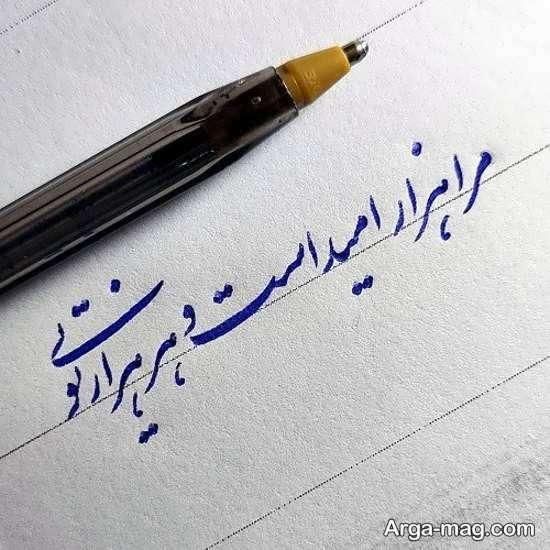 مرا هزار امید است و هر هزار تویی
Arga-mag.com